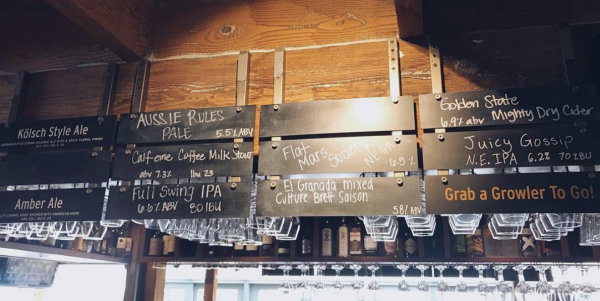 Kölsch Style Ale
Amber Ale
AUSSIE RULES
PALE 5.5% ABV
Caffeine Coffee Milk Stout
abv 7.3% ibu 23
Full Swing IPA
6.6% ABV 80 IBU
Flat
Mars Society
NEIPA
6.9%
El Granada mixed
Culture Brett Saison
5.8% ABV
Golden State
6.9% abv Mighty Dry Cider
Juicy Gossip
N.E. IPA 6.2% 70 IBU
Grab a Growler To Go!